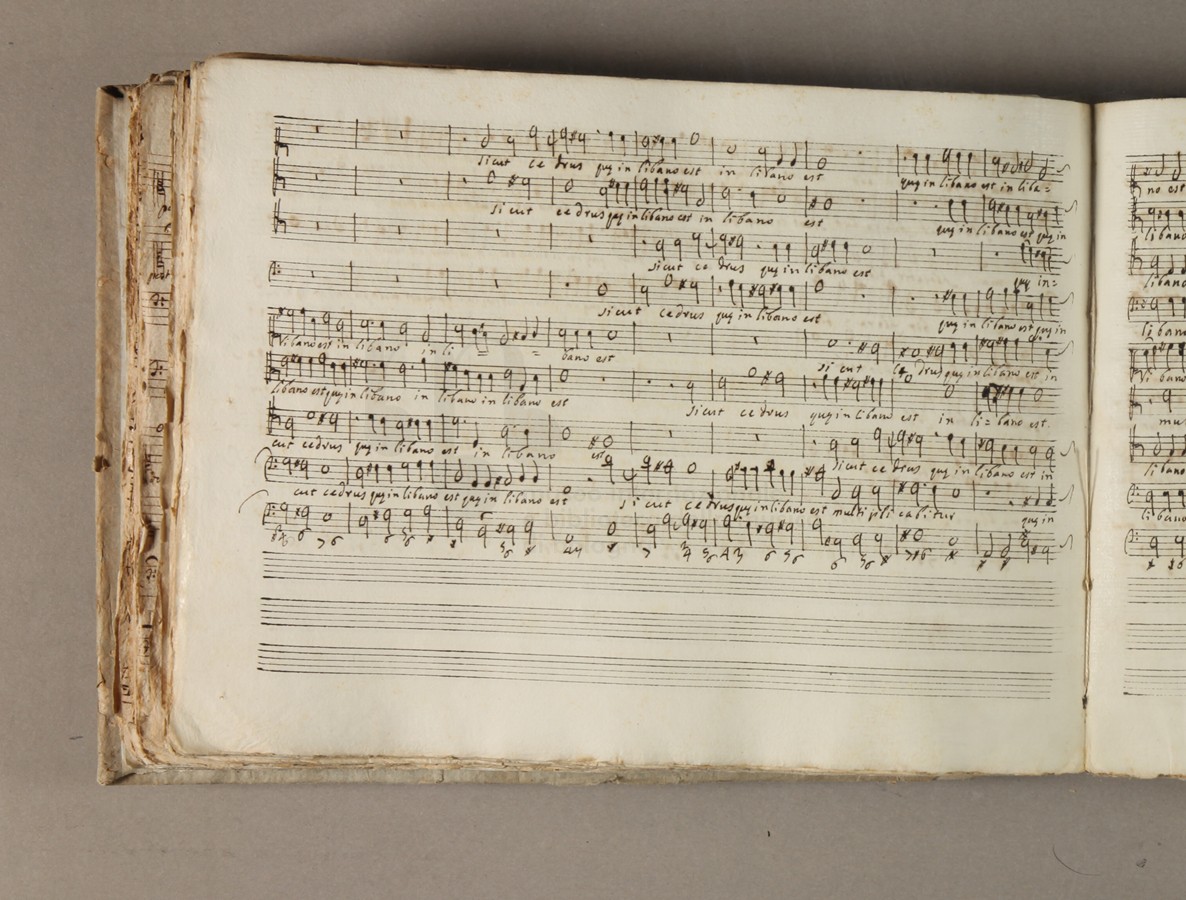 sicut cedrus quę in libano est in libano est quę in libano est in liba=
sicut cedrus quę in libano est in libano est quę in libano est quę in
sicut cedrus quę in libano est quę in=
sicut cedrus quę in libano est quę in libano est quę in
libano est in libano in li = = bano est sicut cedrus quę in libano est in
libano est quę in libano in libano in libano est sicut cedrus quę in libano est in li=bano est.
cut cedrus quę in libano est in libano est sicut cedrus quę in libano est in
cut cedrus quę in libano est quę in libano est sicut cedrus quę in libano est multipli cabitur quę in
no est
libano
libano
li bano
li bano
mu
libano
libano